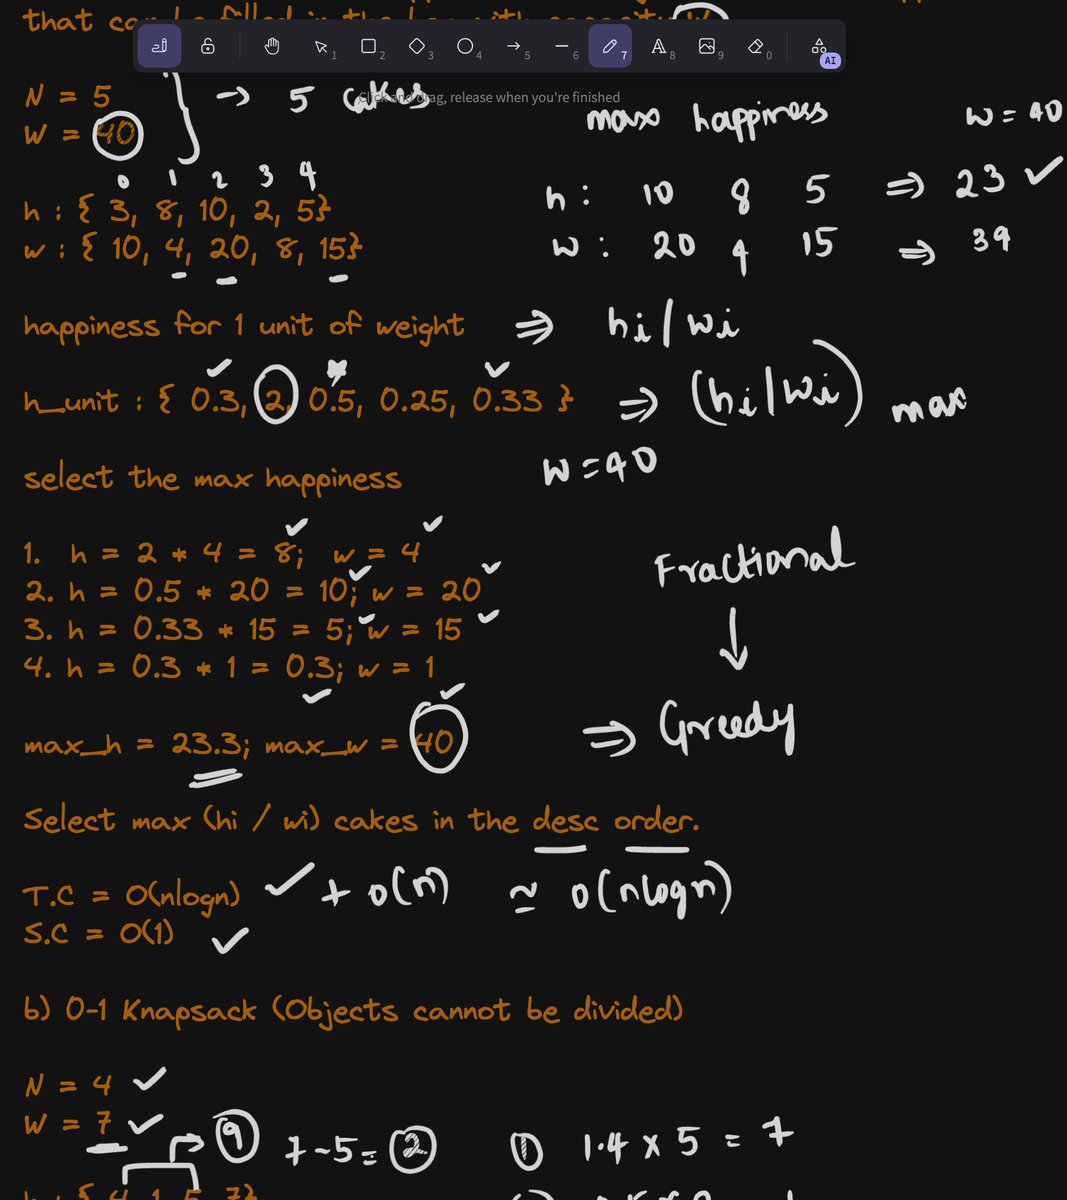 that can be filled in the bag with capacity W
1 2 3 4 5 6 7 8 9 0 AI
Click and drag, release when you're finished
N = 5 → 5 cakes
W = 40
max happiness W = 40
0 1 2 3 4
h : { 3, 8, 10, 2, 5}
w : { 10, 4, 20, 8, 15}
h : 10 8 5 ⇒ 23 ✓
w : 20 4 15 ⇒ 39
happiness for 1 unit of weight ⇒ hi / wi
h_unit : { 0.3, 2, 0.5, 0.25, 0.33 } ⇒ (hi / wi) max
select the max happiness
W = 40
1. h = 2 * 4 = 8; w = 4
2. h = 0.5 * 20 = 10; w = 20
3. h = 0.33 * 15 = 5; w = 15
4. h = 0.3 * 1 = 0.3; w = 1
Fractional
↓
⇒ Greedy
max_h = 23.3; max_w = 40
Select max (hi / wi) cakes in the desc order.
T.C = O(nlogn) ✓ + O(n) ≃ O(nlogn)
S.C = O(1) ✓
b) 0-1 Knapsack (Objects cannot be divided)
N = 4 ✓
W = 7 ✓
9 7-5= 2 1 1.4 x 5 = 7
h : { 4, 1, 5, 7}